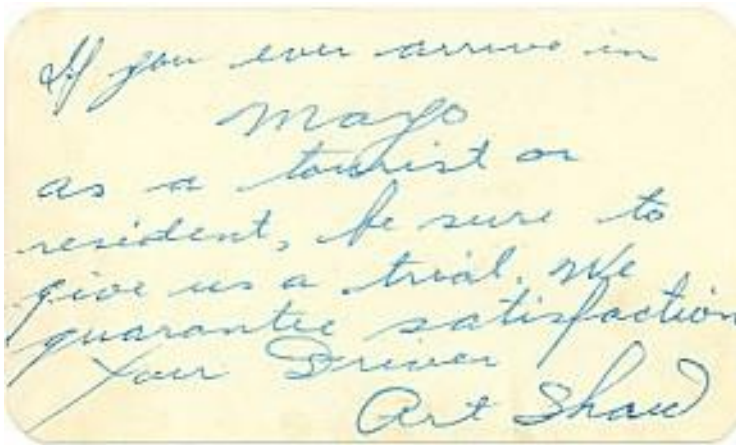 If you ever arrive in
Mayo
as a tourist or
resident, be sure to
give us a trial. We
guarantee satisfaction
Your Driver
Art Shaw